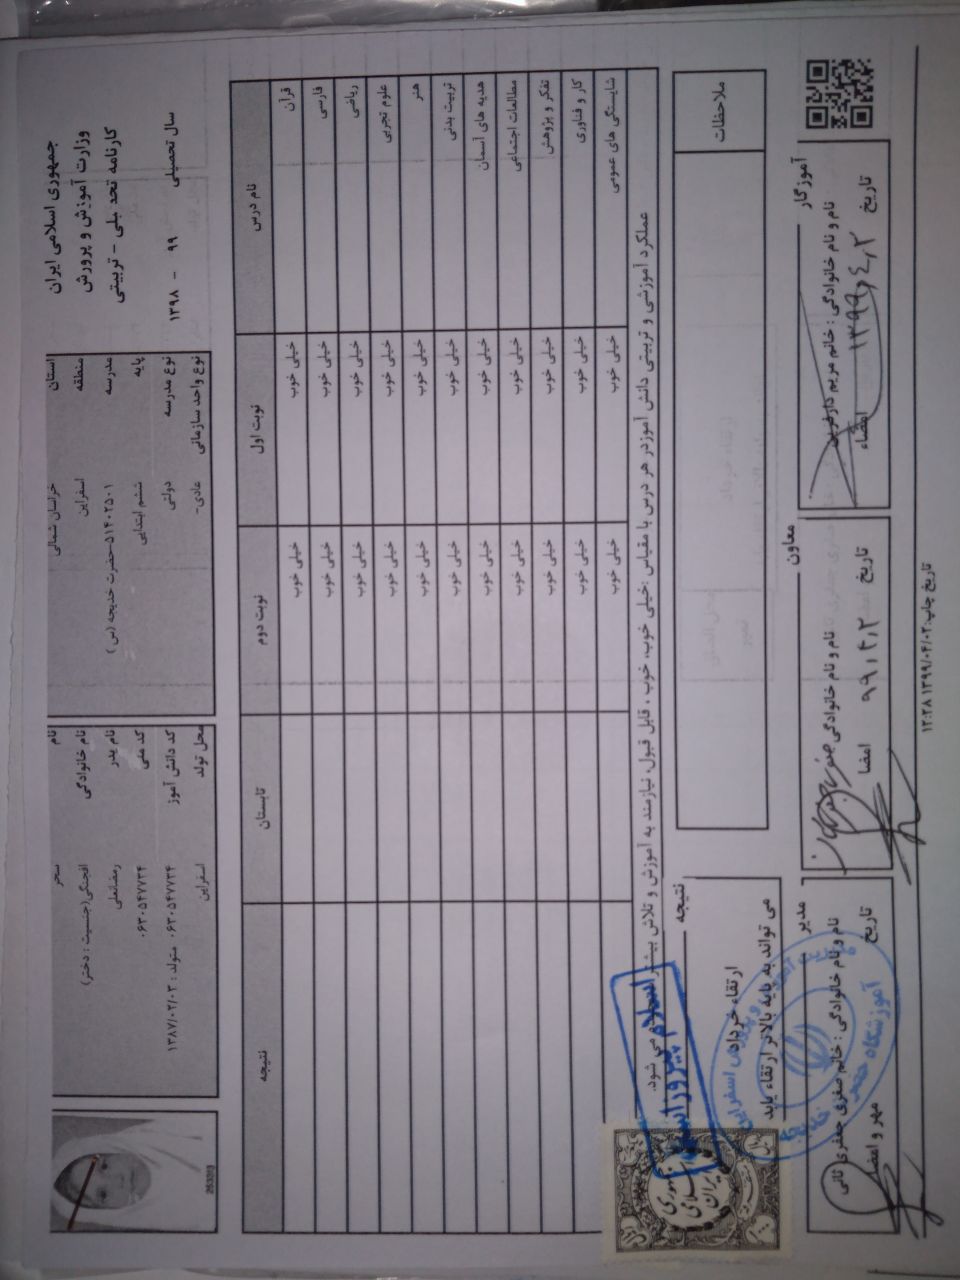 جمهوری اسلامی ایران
وزارت آموزش و پرورش
کارنامه تحصیلی - تربیتی
سال تحصیلی ۹۹ - ۱۳۹۸
استان خراسان شمالی
منطقه اسفراین
مدرسه ۵۱۴۰۲۵۰۱-حضرت خدیجه (س)
پایه ششم ابتدایی
نوع مدرسه دولتی
نوع واحد سازمانی عادی-
نام سحر
نام خانوادگی (جنسیت : دختر)
نام پدر رمضانعلی
کد ملی ۰۶۳۰۵۴۷۷۳۴
کد دانش آموز ۰۶۳۰۵۴۷۷۳۴ متولد : ۱۳۸۷/۰۲/۰۳
محل تولد اسفراین
نام درس نوبت اول نوبت دوم تابستان نتیجه
قرآن خیلی خوب خیلی خوب
فارسی خیلی خوب خیلی خوب
ریاضی خیلی خوب خیلی خوب
علوم تجربی خیلی خوب خیلی خوب
هنر خیلی خوب خیلی خوب
تربیت بدنی خیلی خوب خیلی خوب
هدیه های آسمان خیلی خوب خیلی خوب
مطالعات اجتماعی خیلی خوب خیلی خوب
تفکر و پژوهش خیلی خوب خیلی خوب
کار و فناوری خیلی خوب خیلی خوب
شایستگی های عمومی خیلی خوب خیلی خوب
عملکرد آموزشی و تربیتی دانش آموزدر هر درس با مقیاس :خیلی خوب، خوب ، قابل قبول، نیازمند به آموزش و تلاش بیشتر می شود.
ملاحظات
نتیجه
ارتقاء خرداد
می تواند به پایه بالاتر ارتقاء یابد
اسلام پیروز است
جمهوری
اسلامی
ایران
آموزگار
نام و نام خانوادگی : خانم مریم
تاریخ ۱۳۹۹,۴,۲ امضاء
معاون
نام و نام خانوادگی
تاریخ ۹۹,۴,۲ امضا
مدیر
نام و نام خانوادگی : خانم صغری جعفری ثانی
تاریخ مهر و امضا
تاریخ چاپ:۱۳۹۹/۰۴/۰۲ ۱۲:۲۸